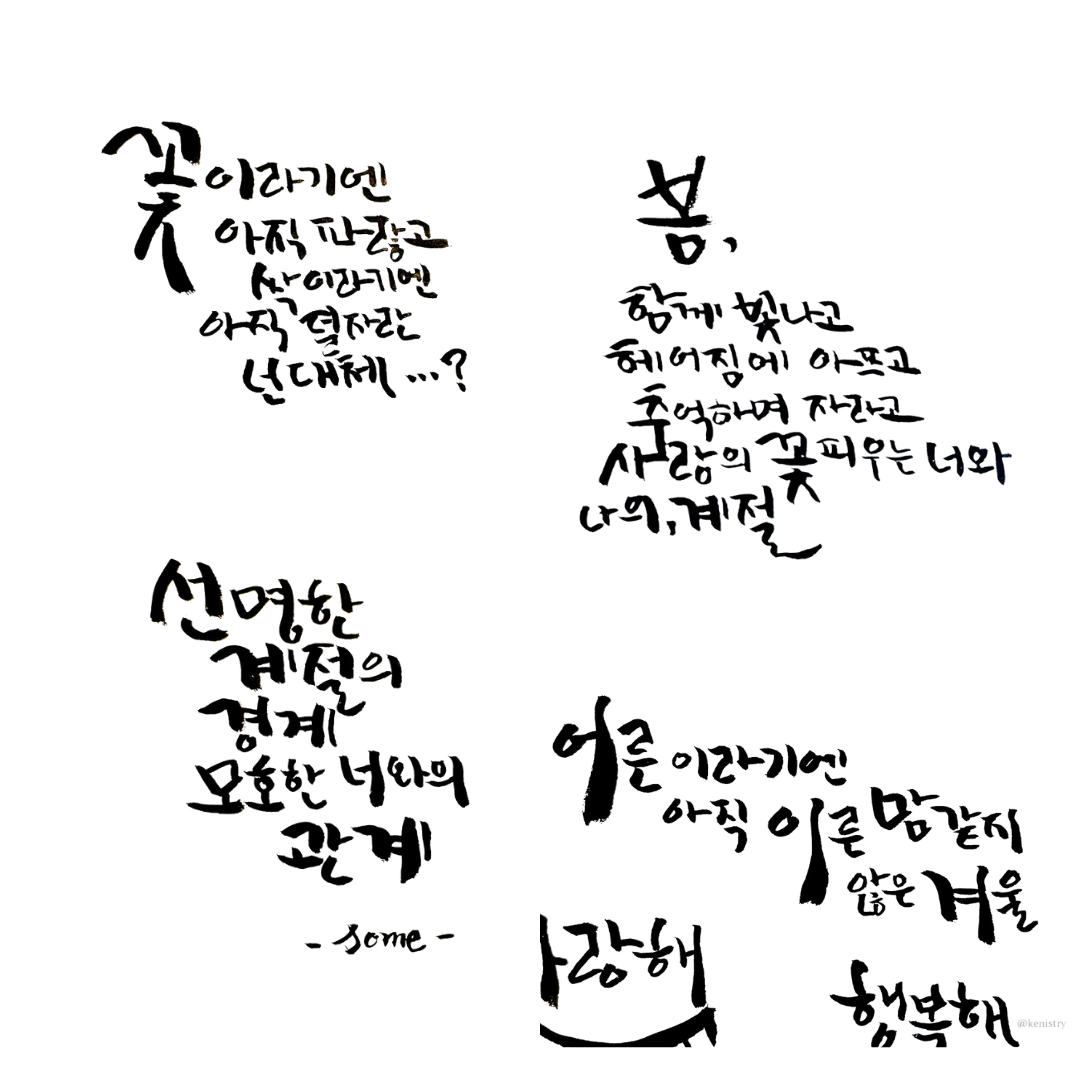 꽃이라기엔
아직 파랗고
싹이라기엔
아직 덜자란
넌대체 ...?
봄,
함께 빛나고
헤어짐에 아프고
추억하며 자라고
사랑의 꽃피우는 너와
나의, 계절
선명한
계절의
경계
모호한 너와의
관계
- some -
어른이라기엔
아직 이른 맘같지
않은 겨울
랑해
행복해
@kenistry